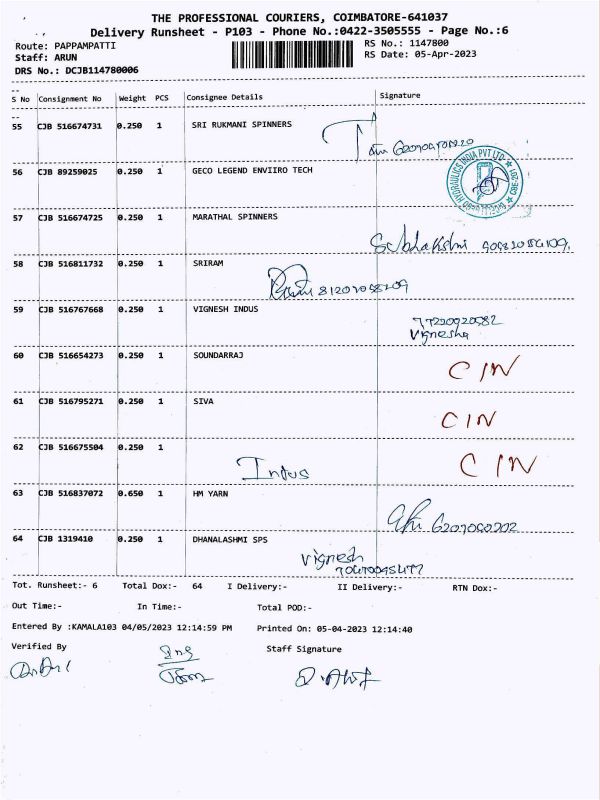 THE PROFESSIONAL COURIERS, COIMBATORE-641037
Delivery Runsheet - P103 - Phone No.:0422-3505555 - Page No.:6
Route: PAPPAMPATTI
RS No.: 1147800
Staff: ARUN
RS Date: 05-Apr-2023
DRS No.: DCJB114780006
S No Consignment No Weight PCS Consignee Details Signature
55 CJB 516674731 0.250 1 SRI RUKMANI SPINNERS
56 CJB 89259025 0.250 1 GECO LEGEND ENVIIRO TECH
HYDRAULICS INDIA PVT LTD
57 CJB 516674725 0.250 1 MARATHAL SPINNERS
58 CJB 516811732 0.250 1 SRIRAM
59 CJB 516767668 0.250 1 VIGNESH INDUS
60 CJB 516654273 0.250 1 SOUNDARRAJ CIN
61 CJB 516795271 0.250 1 SIVA CIN
62 CJB 516675504 0.250 1 CIN
Indus
63 CJB 516837072 0.650 1 HM YARN
64 CJB 1319410 0.250 1 DHANALASHMI SPS
Vignesh
Tot. Runsheet:- 6 Total Dox:- 64 I Delivery:- II Delivery:- RTN Dox:-
Out Time:- In Time:- Total POD:-
Entered By :KAMALA103 04/05/2023 12:14:59 PM Printed On: 05-04-2023 12:14:40
Verified By Staff Signature